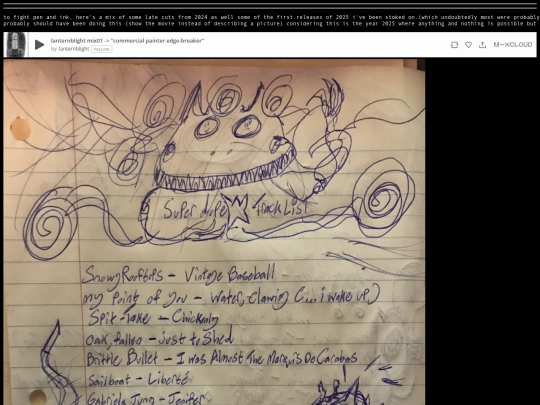 to fight pen and ink, here's a mix of some late cuts from 2024 as well some of the first releases of 2025 i've been stoked on.(which undoubtedly most were probably
probably should have been doing this (show the movie instead of describing a picture) considering this is the year 2025 where anything and nothing is possible but
lanternblight mix01 -> "commercial painter edge-breaker"
by lanternblight FOLLOW
M-XCLOUD
Super dupe Track List
Snowy Rooftops - Vintage Baseball
my point of you - Water, Clawing (...i wake up)
Spit-Take - Chickening
Oak, fallen - just to Shed
Brittle Bullet - I was Almost The Marquis De Carabas
Sailboat - Liberté
Gabriela Jung - Jenifer